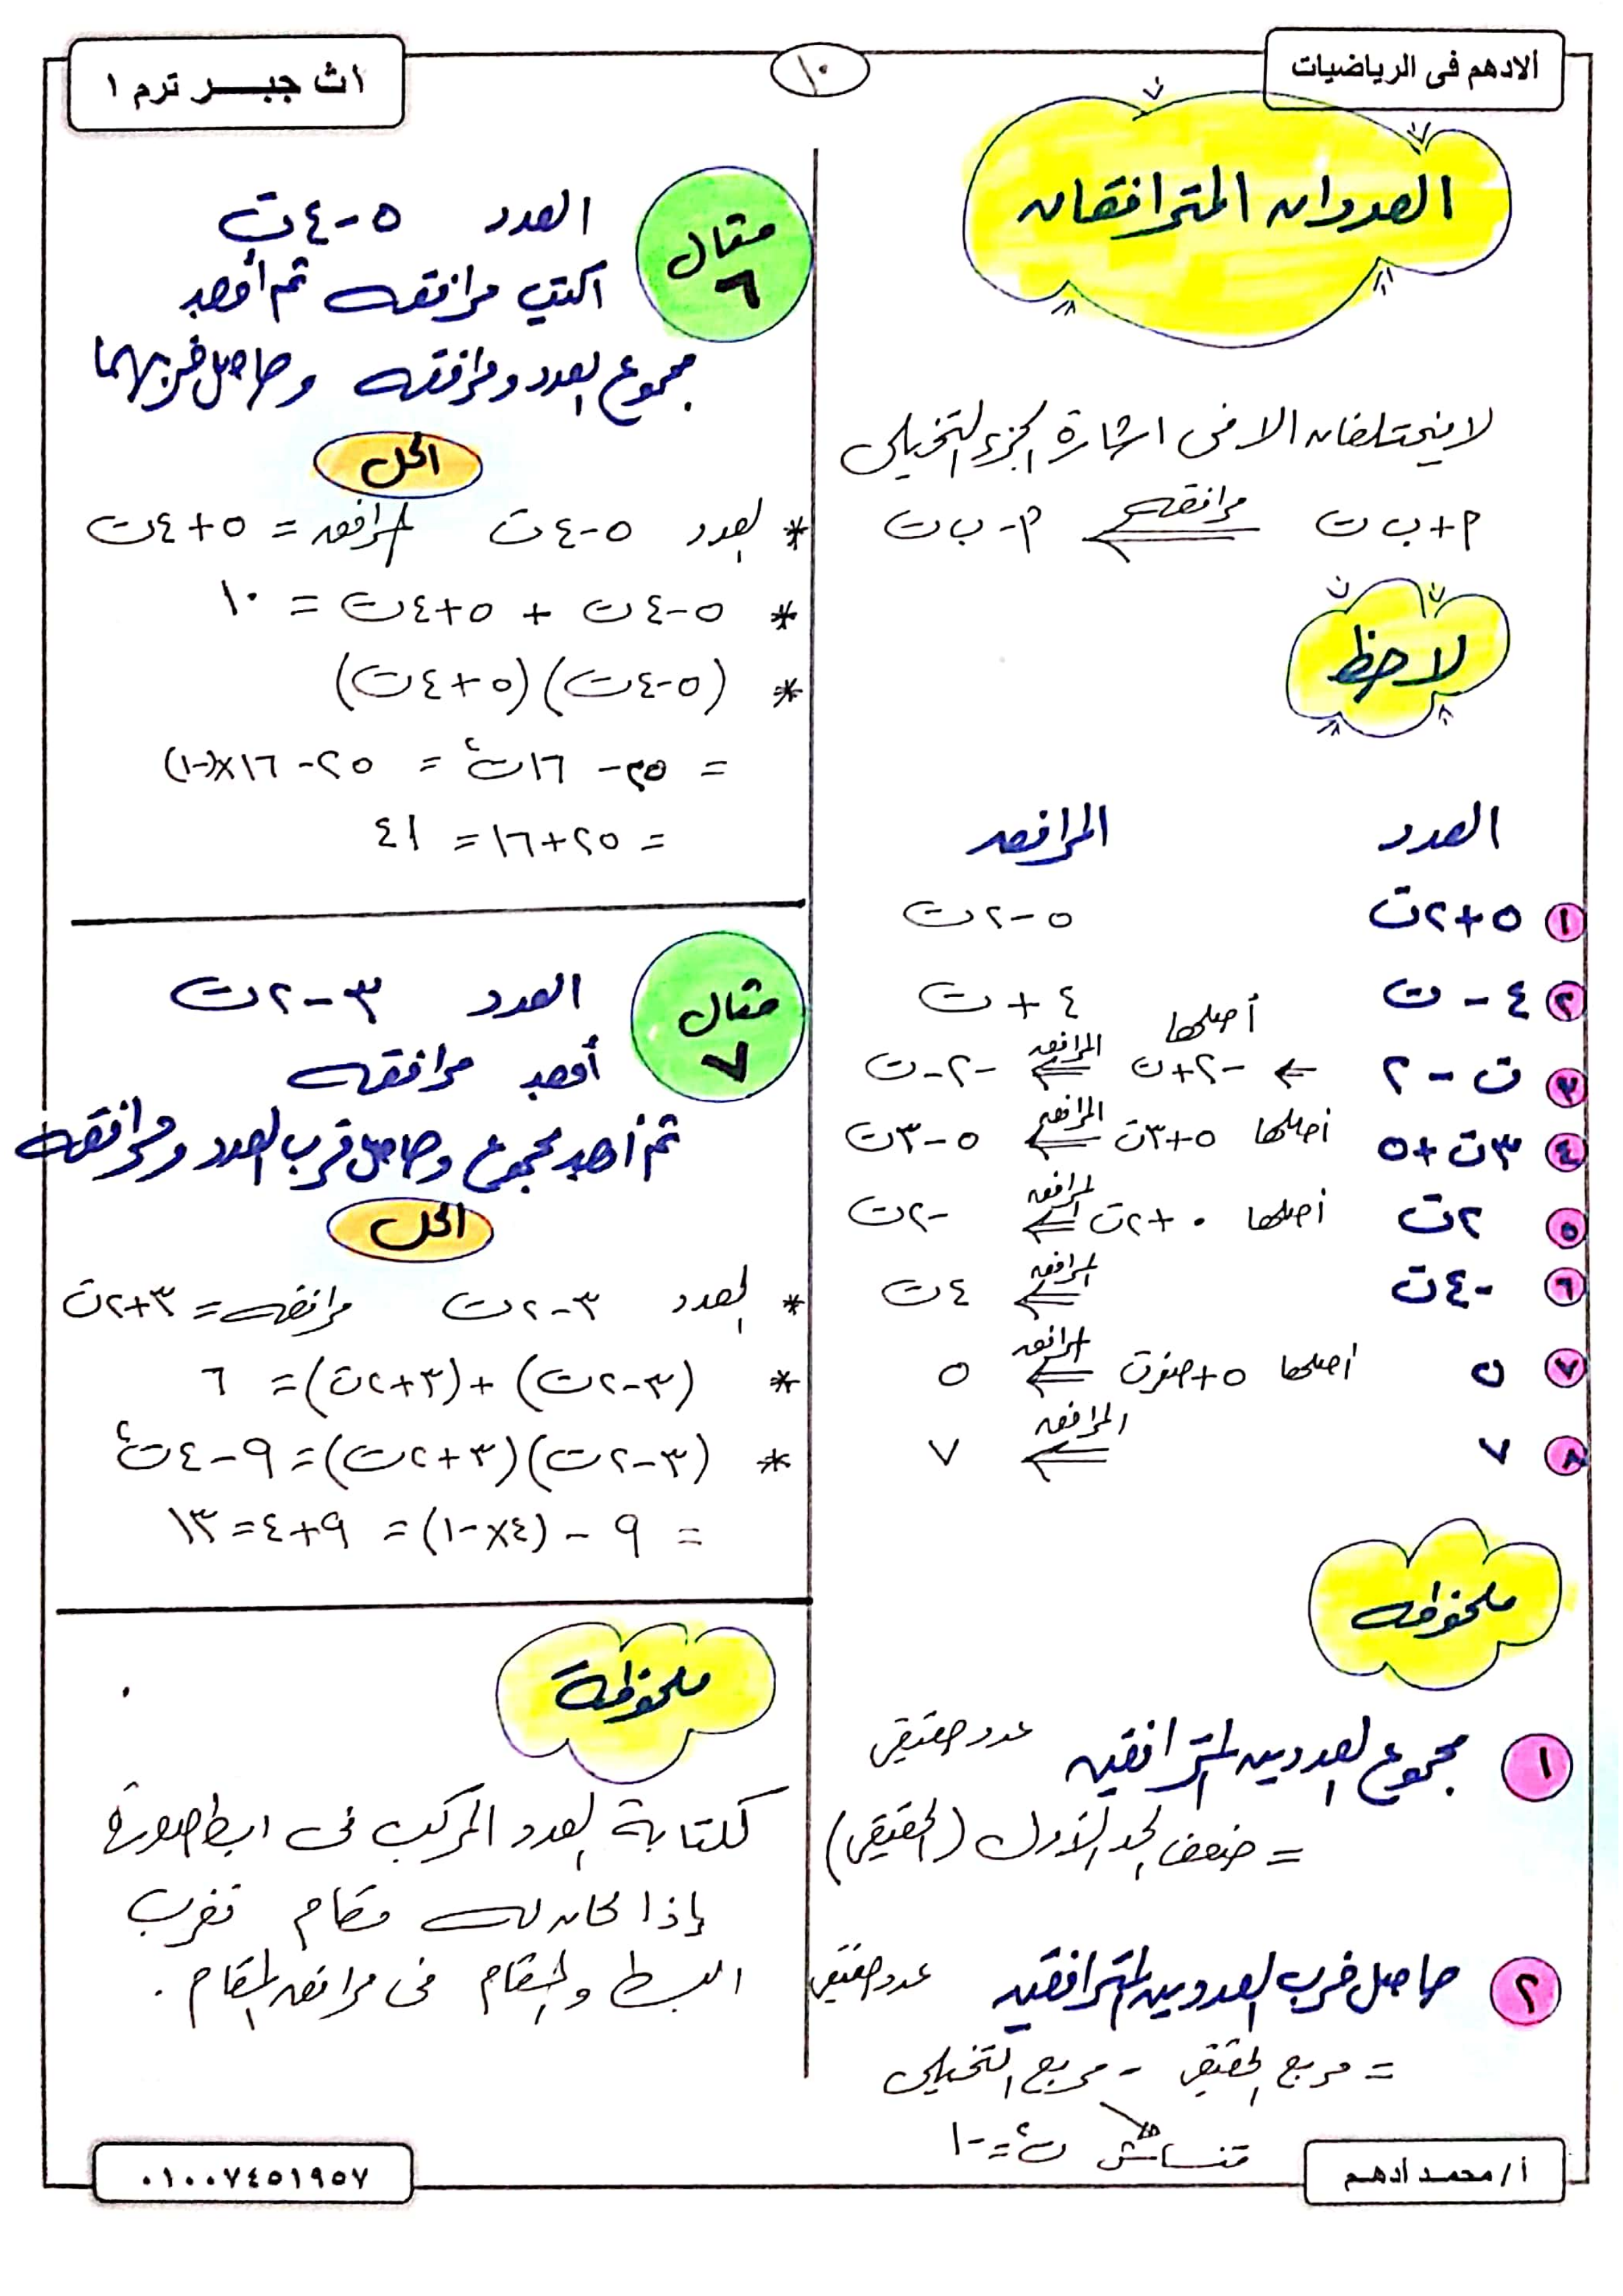 الادهم فى الرياضيات
١٠
١ث جبــر ترم ١
العددان المترافقان
لا يختلفان الا فى اشارة الجزء التخيلى
أ + ب ت مرافقه ⇐ أ - ب ت
لاحظ
العدد المرافق
١ ٥ + ٢ت ٥ - ٢ت
٢ ٤ - ت ٤ + ت
٣ ت - ٢ ← أصلها -٢ + ت المرافق ⇐ -٢ - ت
٤ ٣ت + ٥ أصلها ٥ + ٣ت المرافق ⇐ ٥ - ٣ت
٥ ٢ت أصلها ٠ + ٢ت المرافق ⇐ -٢ت
٦ -٤ت المرافق ⇐ ٤ت
٧ ٥ أصلها ٥ + صفرت المرافق ⇐ ٥
٨ ٧ المرافق ⇐ ٧
ملحوظه
١ مجموع العددين المترافقين عدد حقيقى
= ضعف الحد الأول (الحقيقى)
٢ حاصل ضرب العددين المترافقين عدد حقيقى
= مربع الحقيقى - مربع التخيلى
متنساش ت٢ = -١
مثال ٦
العدد ٥ - ٤ت
اكتب مرافقه ثم أوجد
مجموع العدد ومرافقه وحاصل ضربهما
الحل
* العدد ٥ - ٤ت مرافقه = ٥ + ٤ت
* ٥ - ٤ت + ٥ + ٤ت = ١٠
* (٥ - ٤ت)(٥ + ٤ت)
= ٢٥ - ١٦ت٢ = ٢٥ - ١٦×(-١)
= ٢٥ + ١٦ = ٤١
مثال ٧
العدد ٣ - ٢ت
أوجد مرافقه
ثم أوجد مجموع وحاصل ضرب العدد ومرافقه
الحل
* العدد ٣ - ٢ت مرافقه = ٣ + ٢ت
* (٣ - ٢ت) + (٣ + ٢ت) = ٦
* (٣ - ٢ت)(٣ + ٢ت) = ٩ - ٤ت٢
= ٩ - (٤× -١) = ٩ + ٤ = ١٣
ملحوظة
لكتابة العدد المركب فى ابسط صورة
إذا كان له مقام نضرب
البسط والمقام فى مرافق المقام .
أ / محمد أدهم
٠١٠٠٧٤٥١٩٥٧